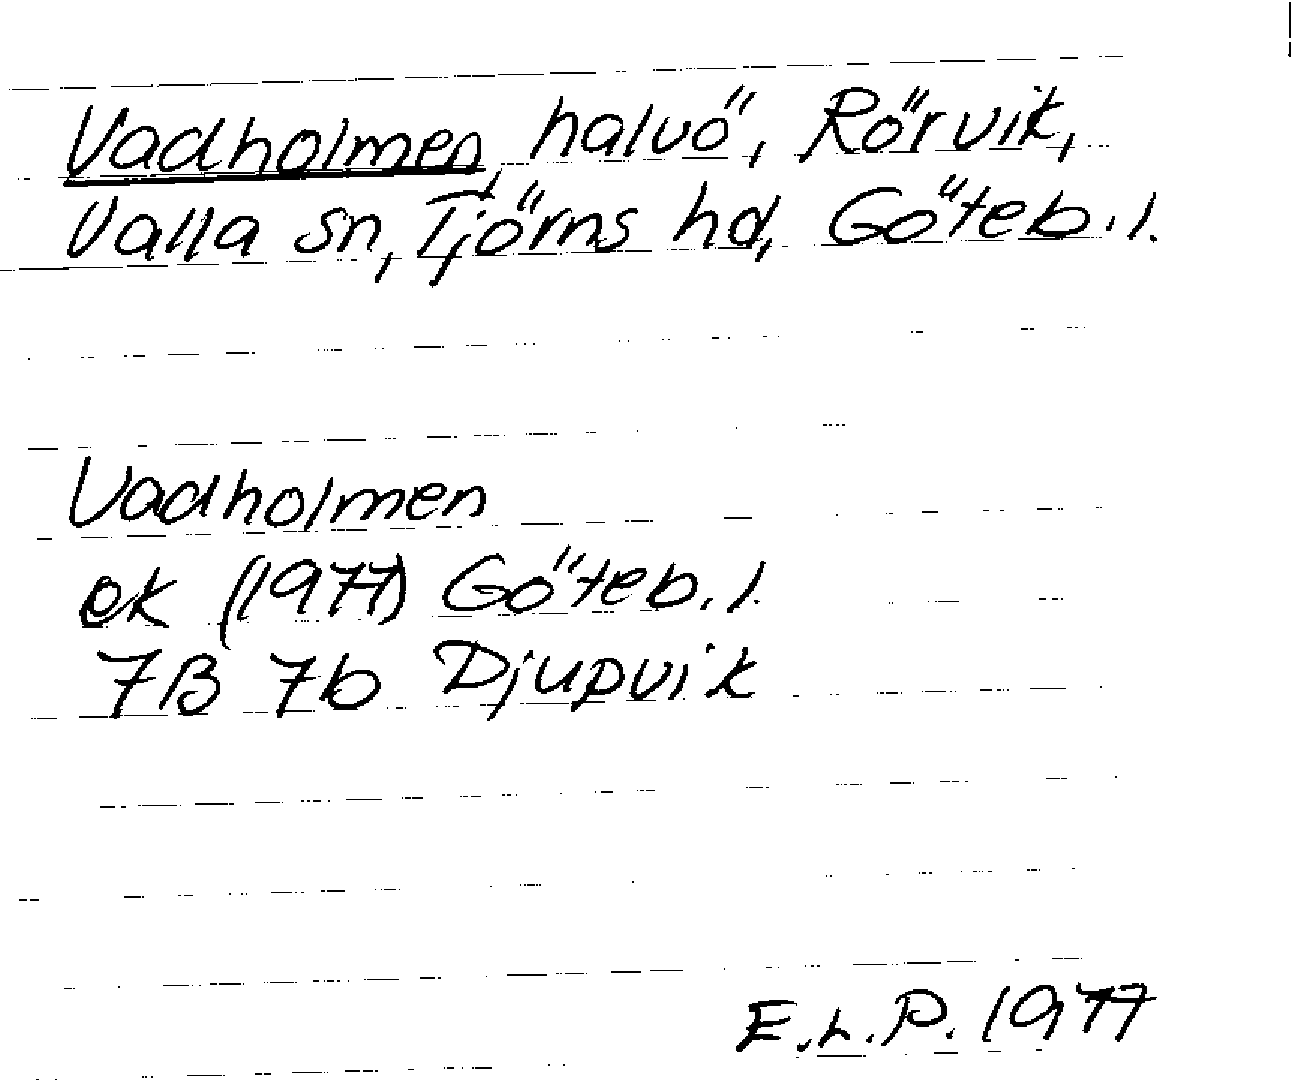 Vadholmen, halvö, Rörvik,
Valla sn, Tjörns hd, Göteb.l.
Vadholmen
ek (1977) Göteb.l.
7B 7b Djupvik
E.L.P. 1977